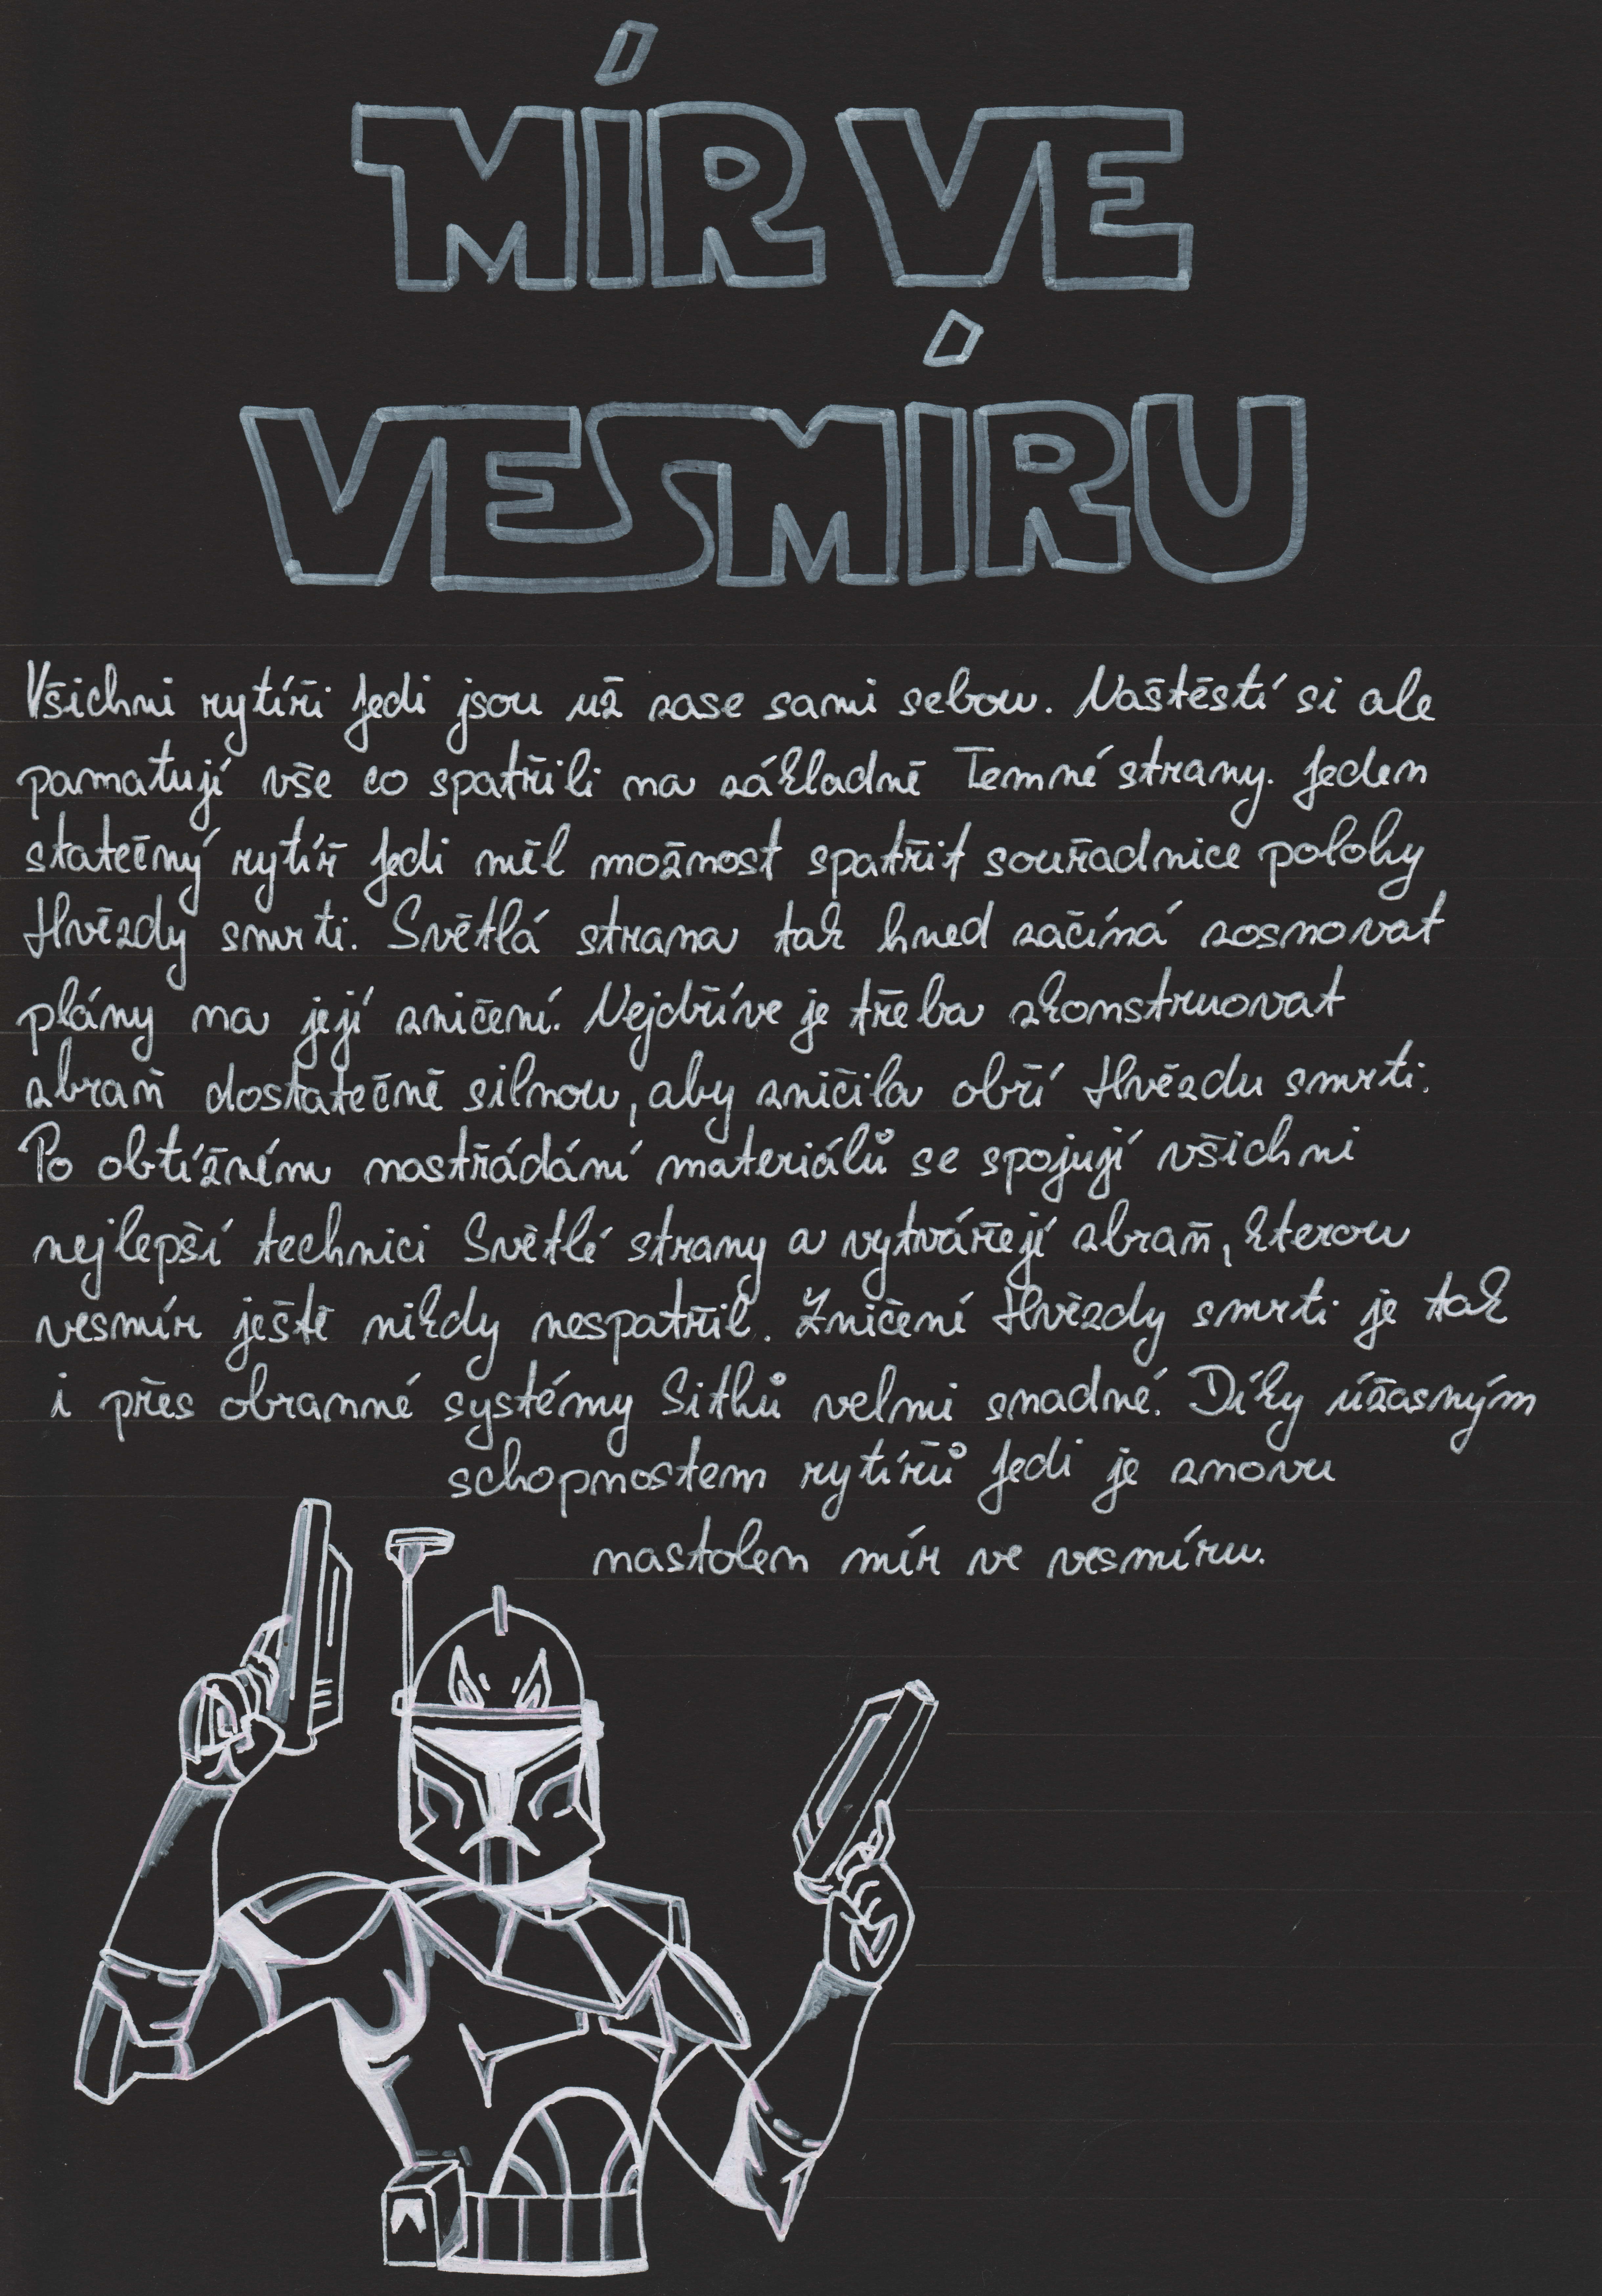 MÍR VE
VESMÍRU
Všichni rytíři Jedi jsou už zase sami sebou. Naštěstí si ale
pamatují vše co spatřili na základně Temné strany. Jeden
statečný rytíř Jedi měl možnost spatřit souřadnice polohy
Hvězdy smrti. Světlá strana tak hned začíná sosnovat
plány na její zničení. Nejdříve je třeba zkonstruovat
zbraň dostatečně silnou, aby zničila obří Hvězdu smrti.
Po obtížném nastřádání materiálů se spojují všichni
nejlepší technici Světlé strany a vytvářejí zbraň, kterou
vesmír ještě nikdy nespatřil. Zničení Hvězdy smrti je tak
i přes obranné systémy Sithů velmi snadné. Díky úžasným
schopnostem rytířů Jedi je znovu
nastolen mír ve vesmíru.